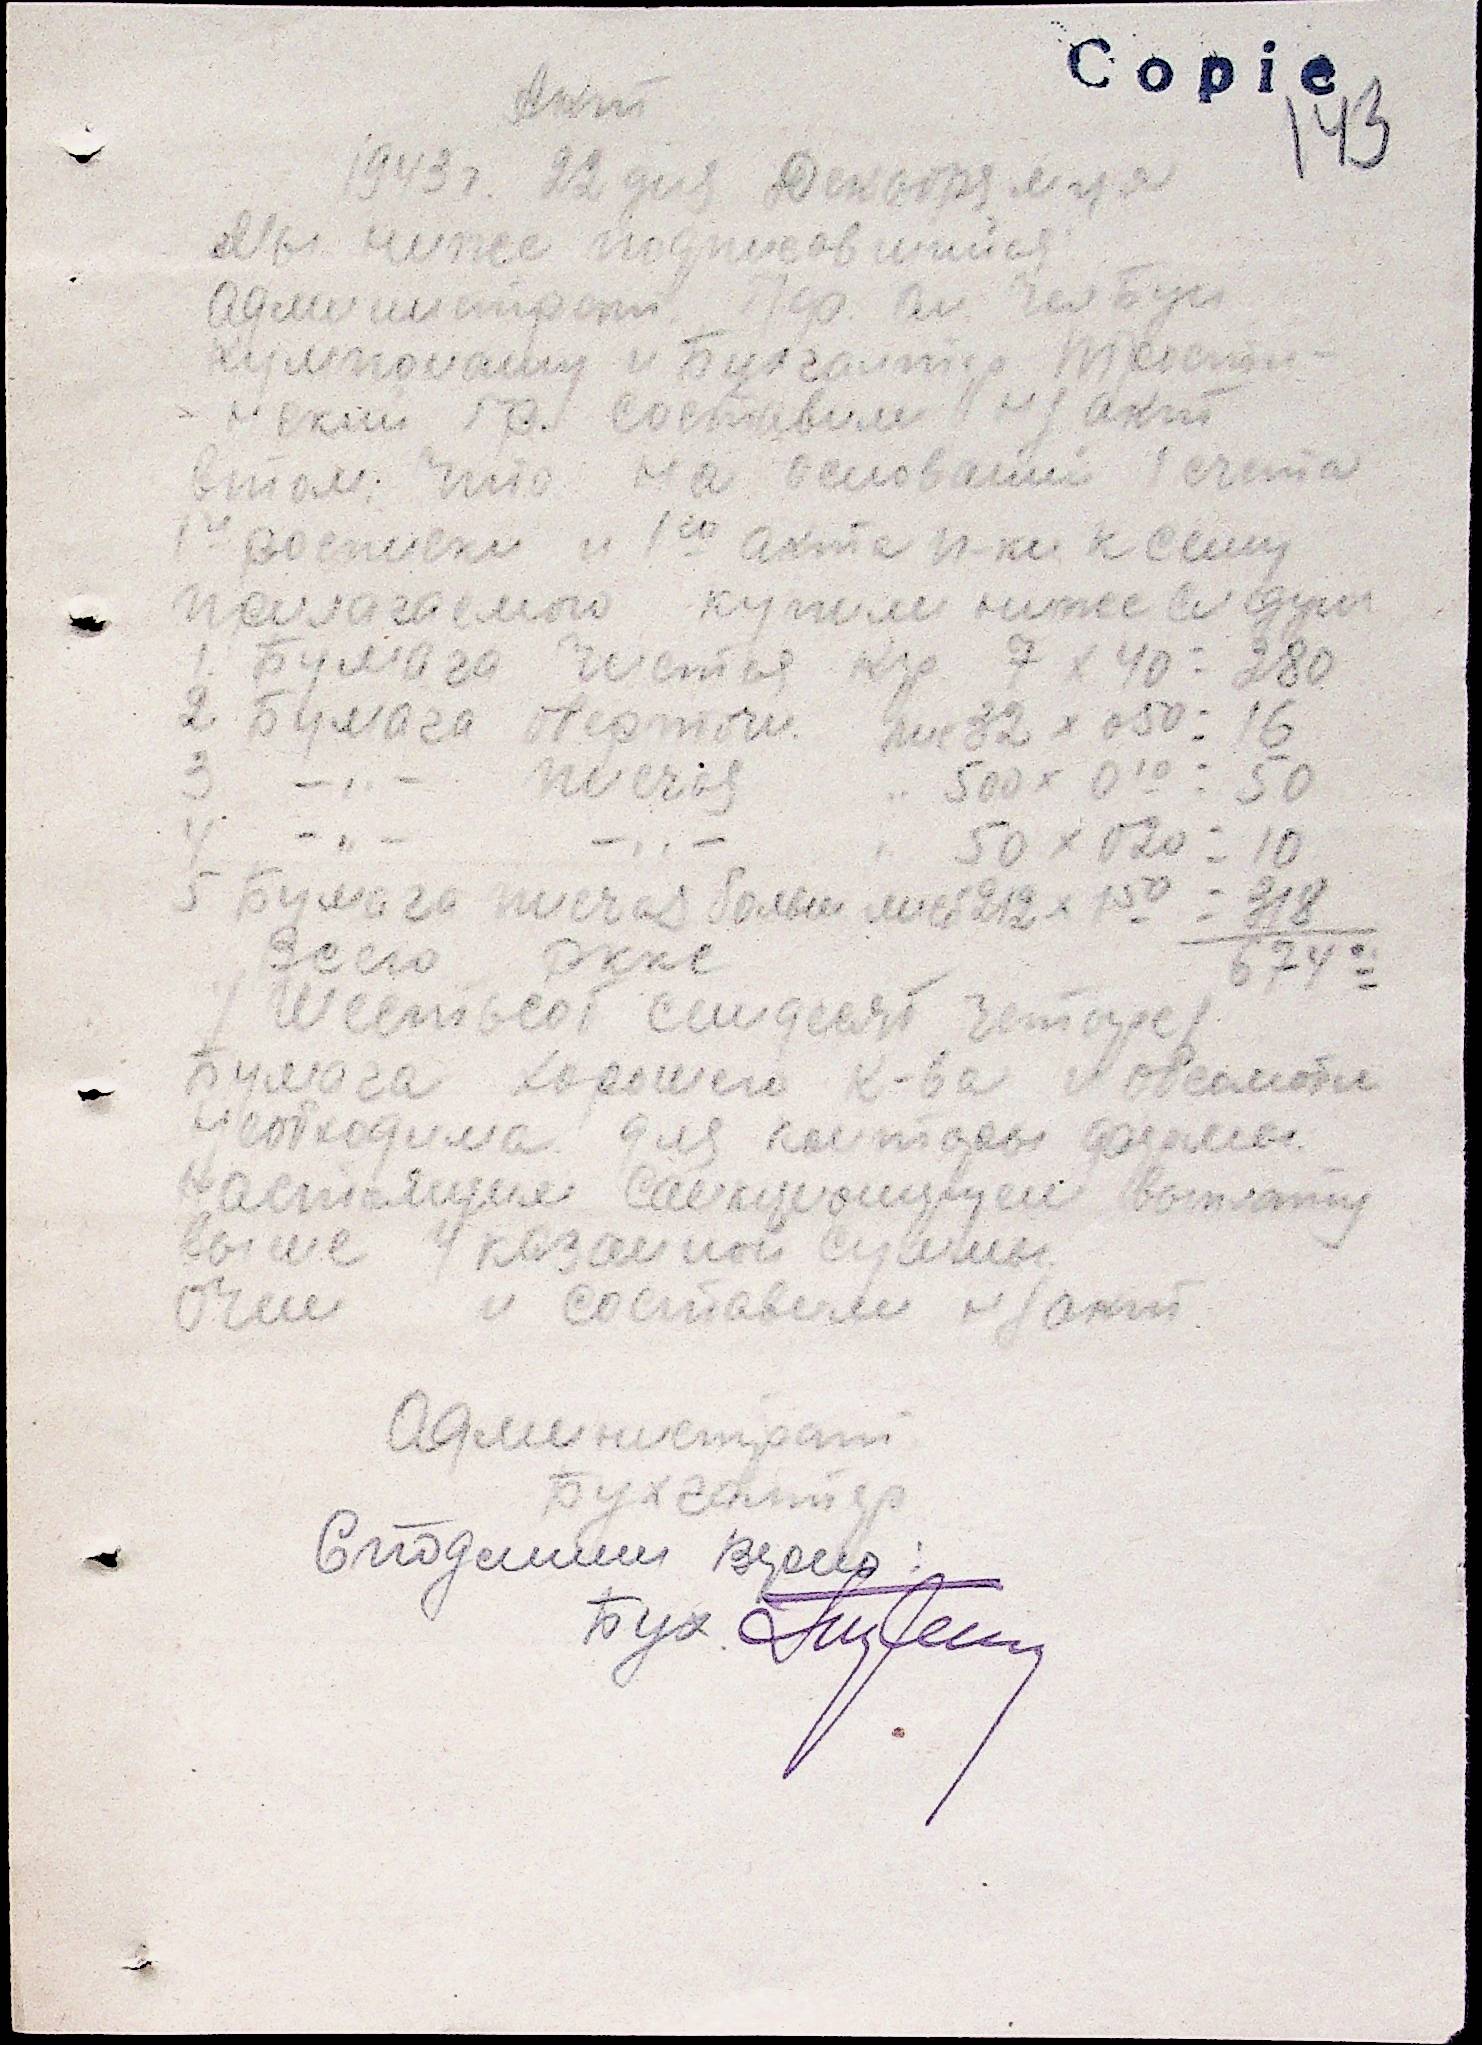 Copie
143
Акт
1943 г. 22 дня Декабря м-ця
Мы ниже подписавшийся
Администрат.
и Бухгалтер
нский Гр. составили н/акт
втом, что на основании 1 счета
1ой росписки и 1го акта к сему
прилагаемого купили ниже
1. Бумага чистая кгр 7 x 40 = 280
2 Бумага оберточн. лис 32 x 050 = 16
3 -„- писчая „ 500 x 010 = 50
4 -„- -„- „ 50 x 020 = 10
5 Бумага писчая больш лист 212 x 150 = 318
Всего ркке 674=
/Шестьсот семдесят четыре/
Бумага хорошего к-ва и
необходима для конторы фермы.
настоящим санкционируем выплату
выше указанной суммы
Очем и составили н/акт.
Администрат
Бухгалтер
Сподлинным верно:
Бух.